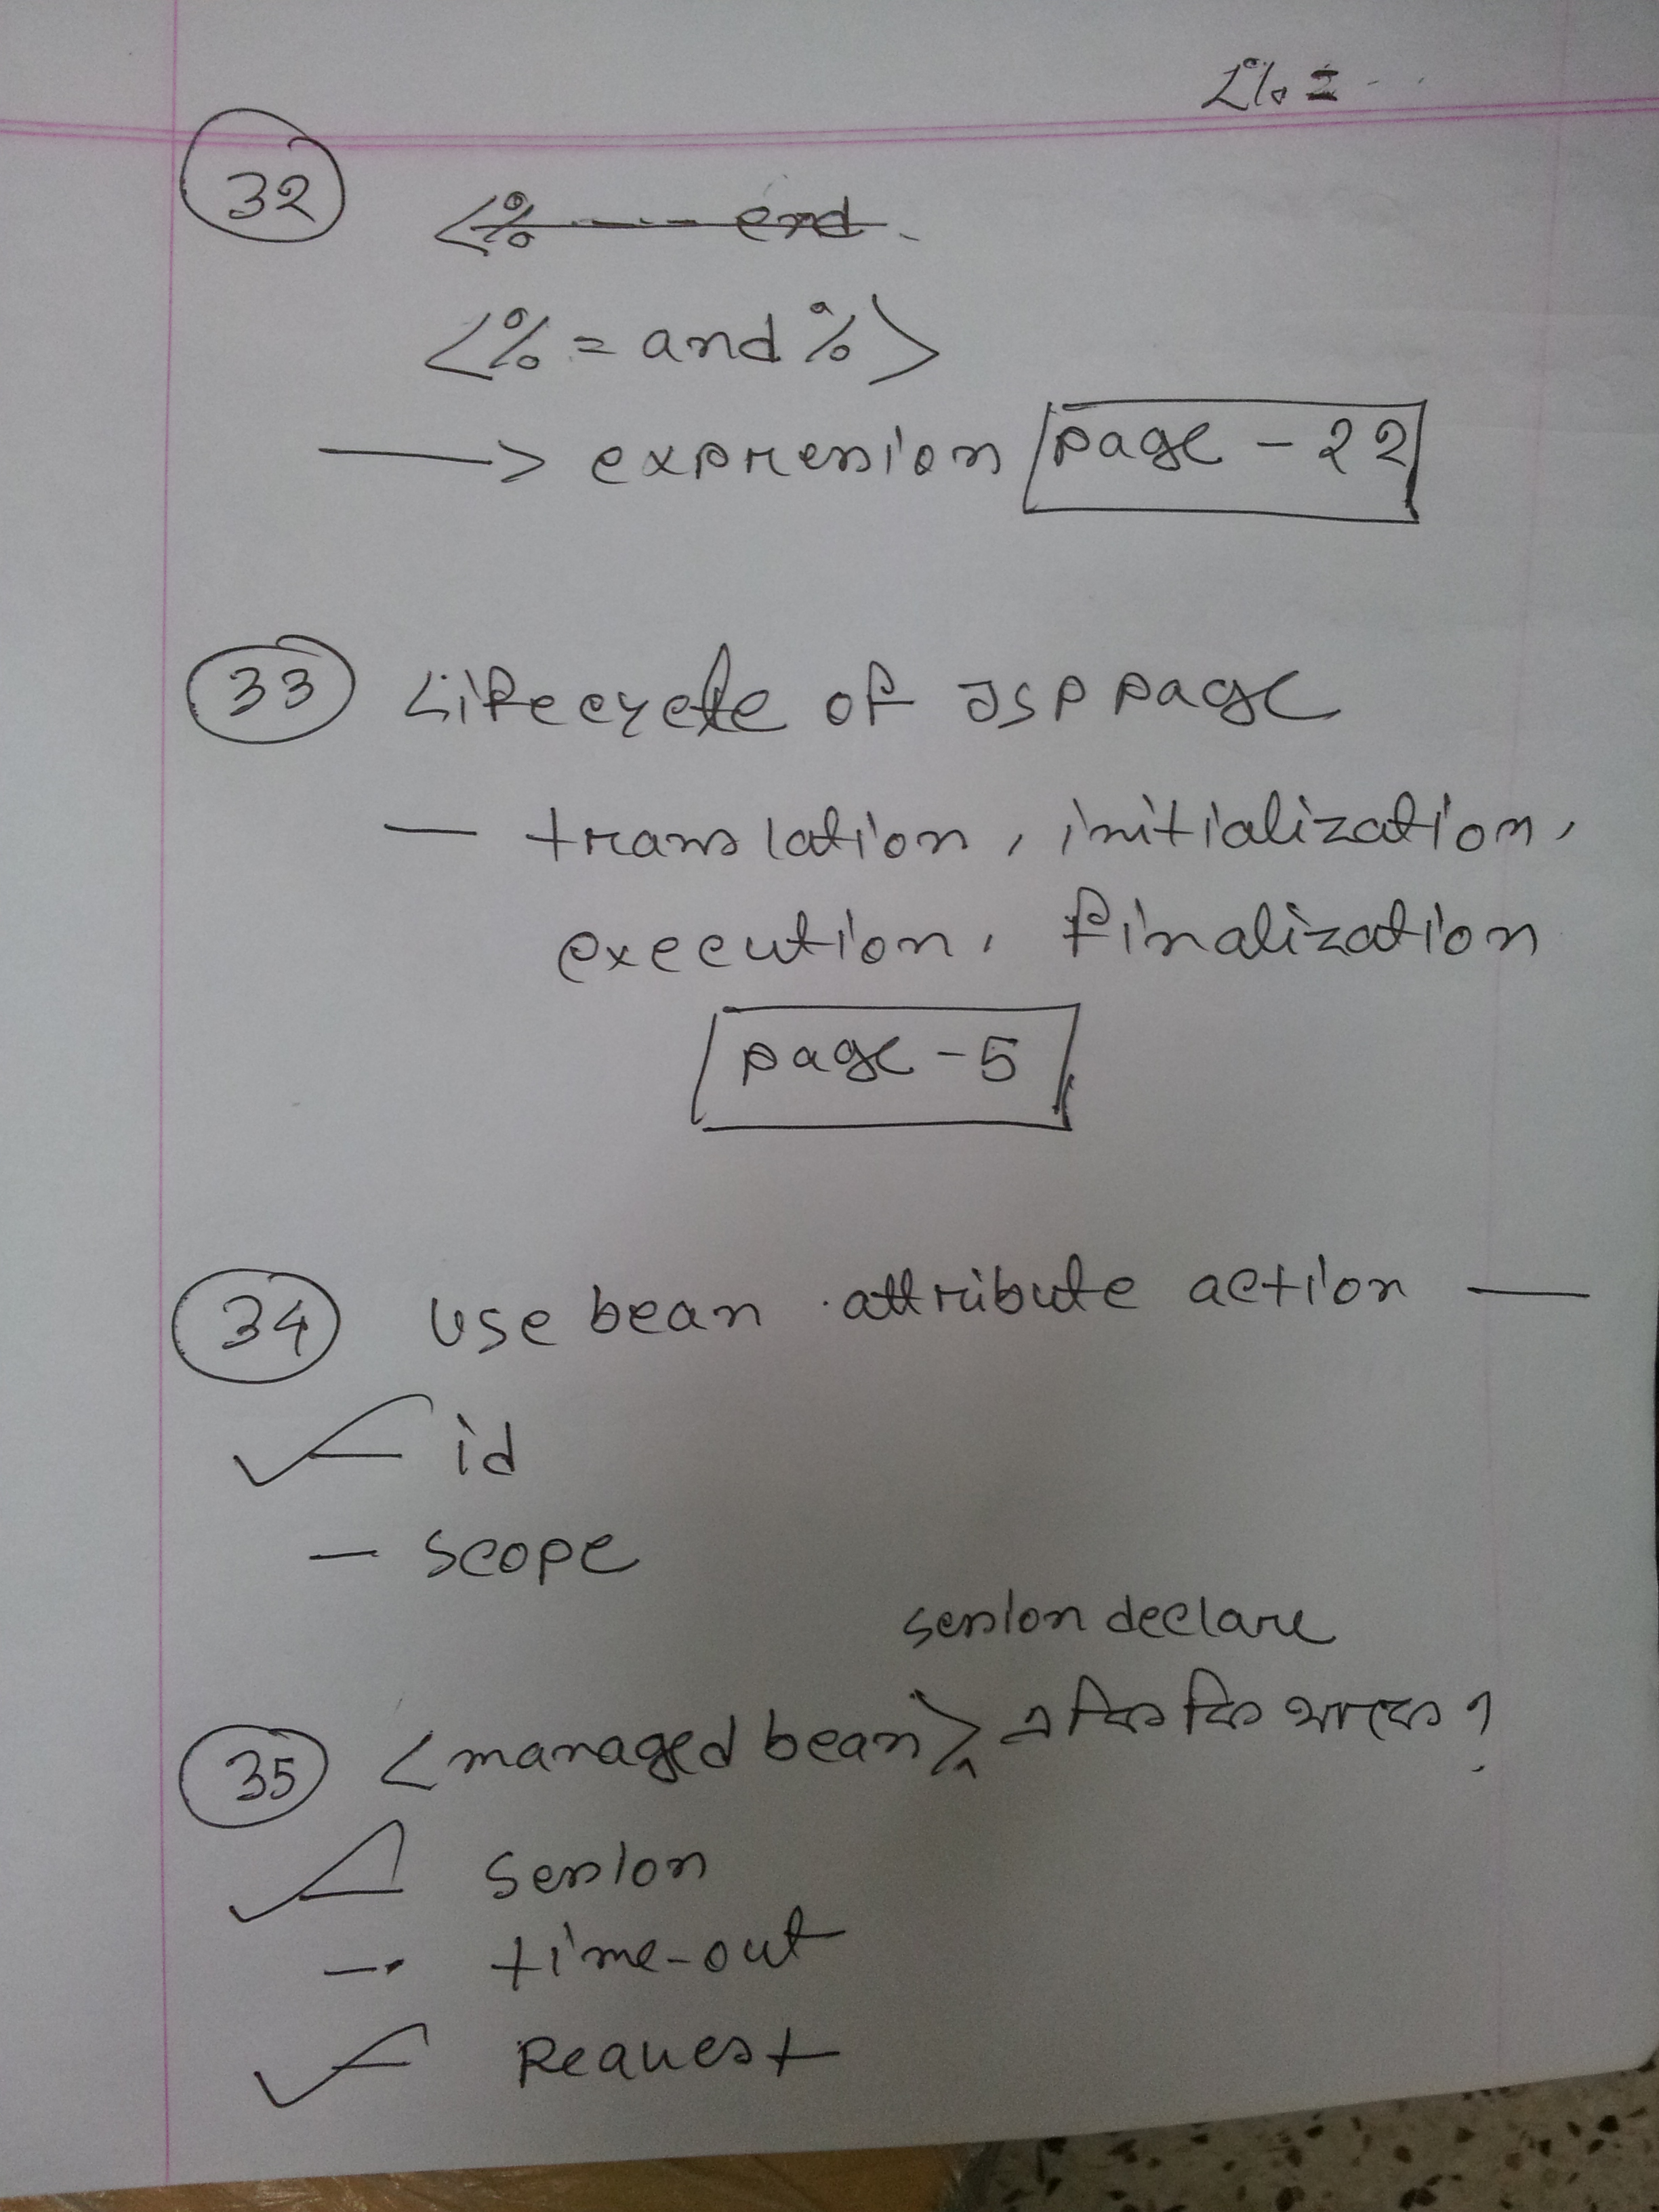 <% =
32
<% --- end
<% = and %>
—> expression page - 22
33 Lifecycle of JSP page
— translation, initialization,
execution, finalization
page - 5
34 Use bean attribute action —
id
— scope
session declare
35 <managed bean> এ কি কি থাকে ?
session
— time-out
Request